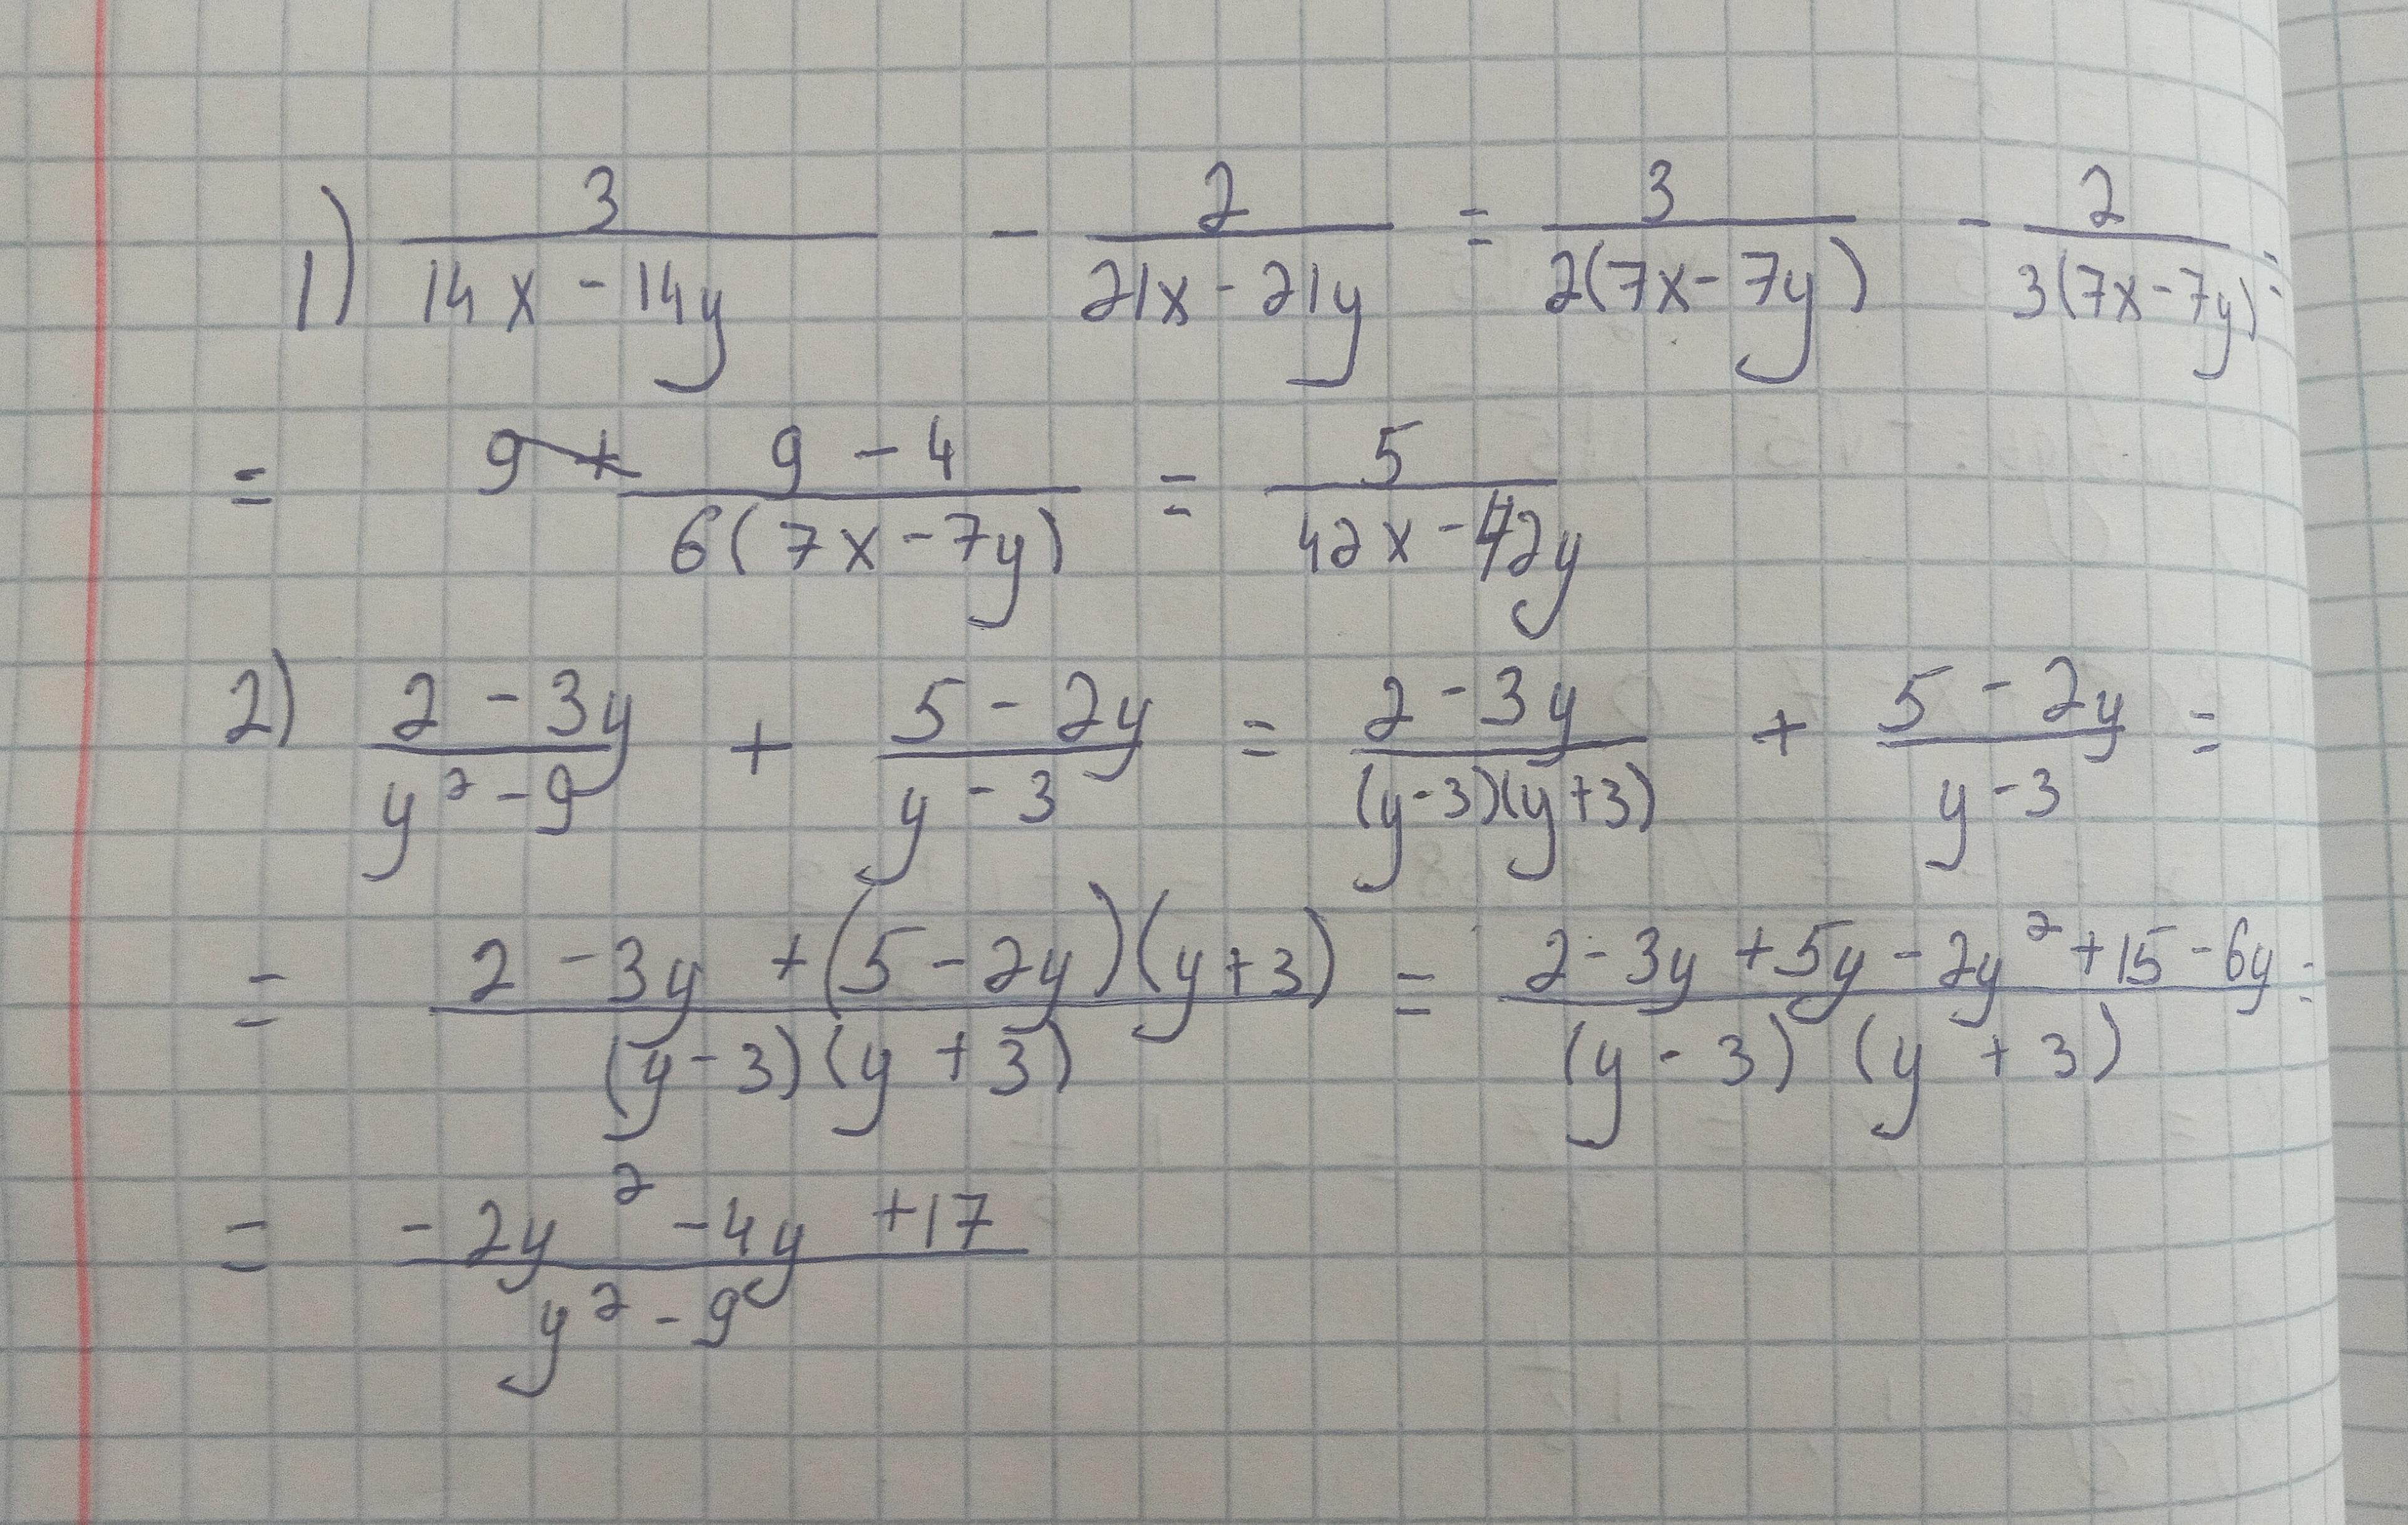 1) 3/(14x - 14y) - 2/(21x - 21y) = 3/(2(7x - 7y)) - 2/(3(7x - 7y)) =
= (9 - 4)/(6(7x - 7y)) = 5/(42x - 42y)
2) (2 - 3y)/(y² - 9) + (5 - 2y)/(y - 3) = (2 - 3y)/((y - 3)(y + 3)) + (5 - 2y)/(y - 3) =
= (2 - 3y + (5 - 2y)(y + 3))/((y - 3)(y + 3)) = (2 - 3y + 5y - 2y² + 15 - 6y)/((y - 3)(y + 3)) =
= (-2y² - 4y + 17)/(y² - 9)